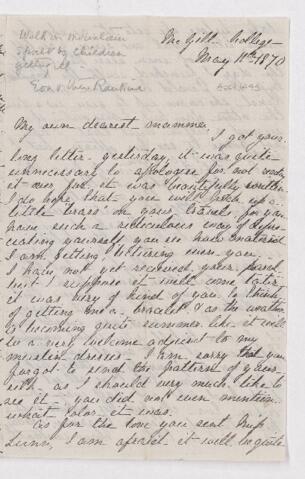 Walk on Mountain
spoilt by children
getting ill
Eon & Tom Rankine
McGill College
May 11th 1870
My own dearest mamma,
I got your
long letter yesterday, it was quite
unnecessary to apologise for not
it over for it was beautifully written
I do hope that you will pick up a
little brass in your travels for you
have such a ridiculous way of depre-
ciating yourself you see how
I am getting lecturing even you -
I have not yet received your parcel
but I suppose it will come later
it was very kind of you to think
of getting me a bracelet & as the weather
is becoming quite summer like it will
be a very welcome adjunct to my
muslin dresses - I am sorry that you
forgot to send the pattern of yours
with as I should very much like to
see it - you did not even mention
what color it was.
As for the love you sent Miss
Lunn, I am afraid it will be quite